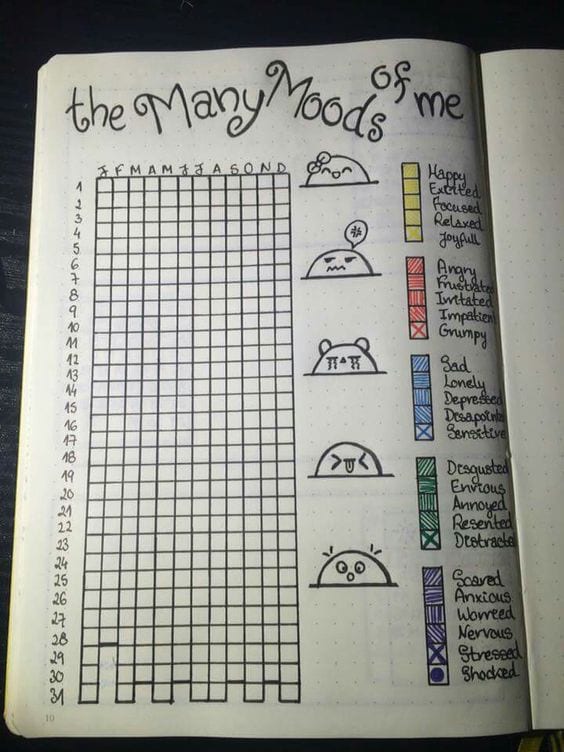 the Many Moods of me
J F M A M J J A S O N D
1
2
3
4
5
6
7
8
9
10
11
12
13
14
15
16
17
18
19
20
21
22
23
24
25
26
27
28
29
30
31
Happy
Excited
Focused
Relaxed
Joyfull
Angry
Frustrated
Irritated
Impatien
Grumpy
Sad
Lonely
Depressed
Disapoint
Sensitive
Disgusted
Envious
Annoyed
Resented
Distracte
Scared
Anxious
Worreed
Nervous
Stressed
Shocked
10